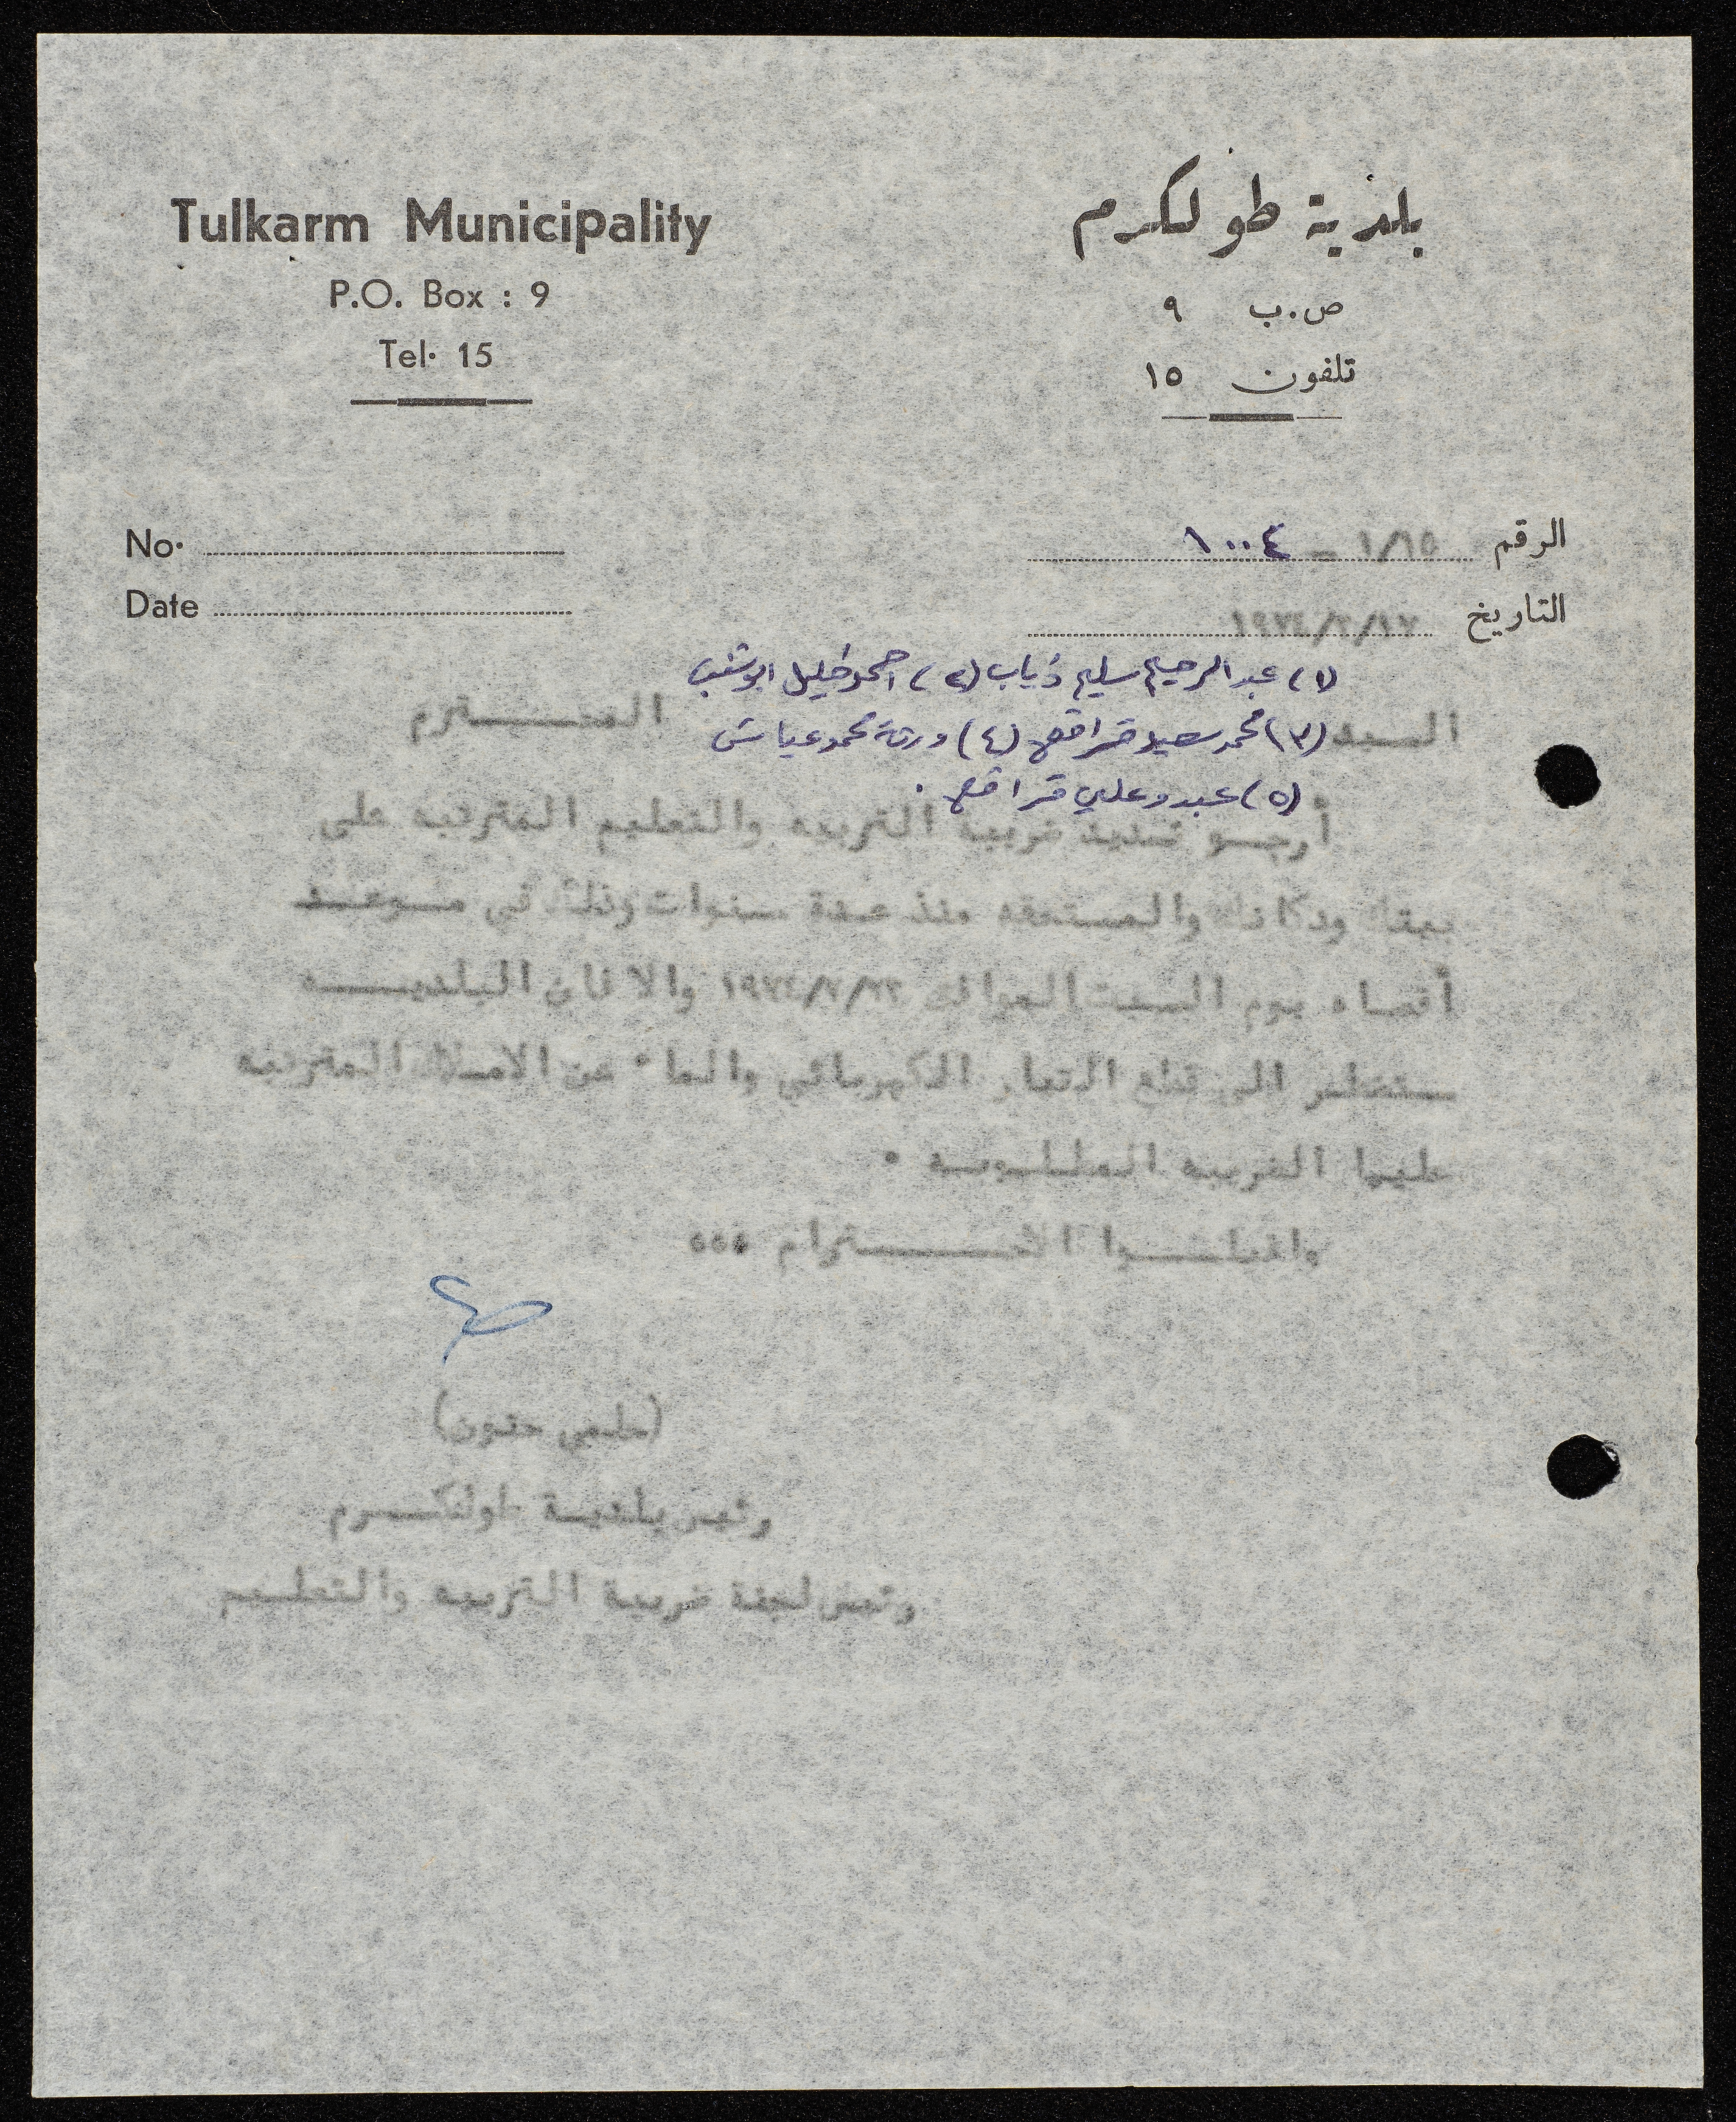 Tulkarm Municipality
P.O. Box : 9
Tel. 15
بلدية طولكرم
ص.ب ٩
تلفون ١٥
No.
Date
الرقم ١/١٥ - ١٠٠٤
التاريخ
(١) عبد الرحيم سليم ذياب (٢) احمد خليل ابو شنب
السيد (٣) محمد سعيد قراقع (٤) ورثة محمد عياش المحترم
(٥) عبد وعلي قراقع .
أرجو تسديد ضريبة التربيه والتعليم المترتبه على
بيتك ودكانك والمستحقه منذ عدة سنوات وذلك في موعد
أقصاه يوم السبت الموافق والا فان البلديه
ستضطر الى قطع التيار الكهربائي والماء عن الاملاك المترتبه
عليها الضريبه المطلوبه .
واقبلوا الاحترام ٠٠٠
(حلمي حنون)
رئيس بلدية طولكرم
رئيس لجنة ضريبة التربيه والتعليم